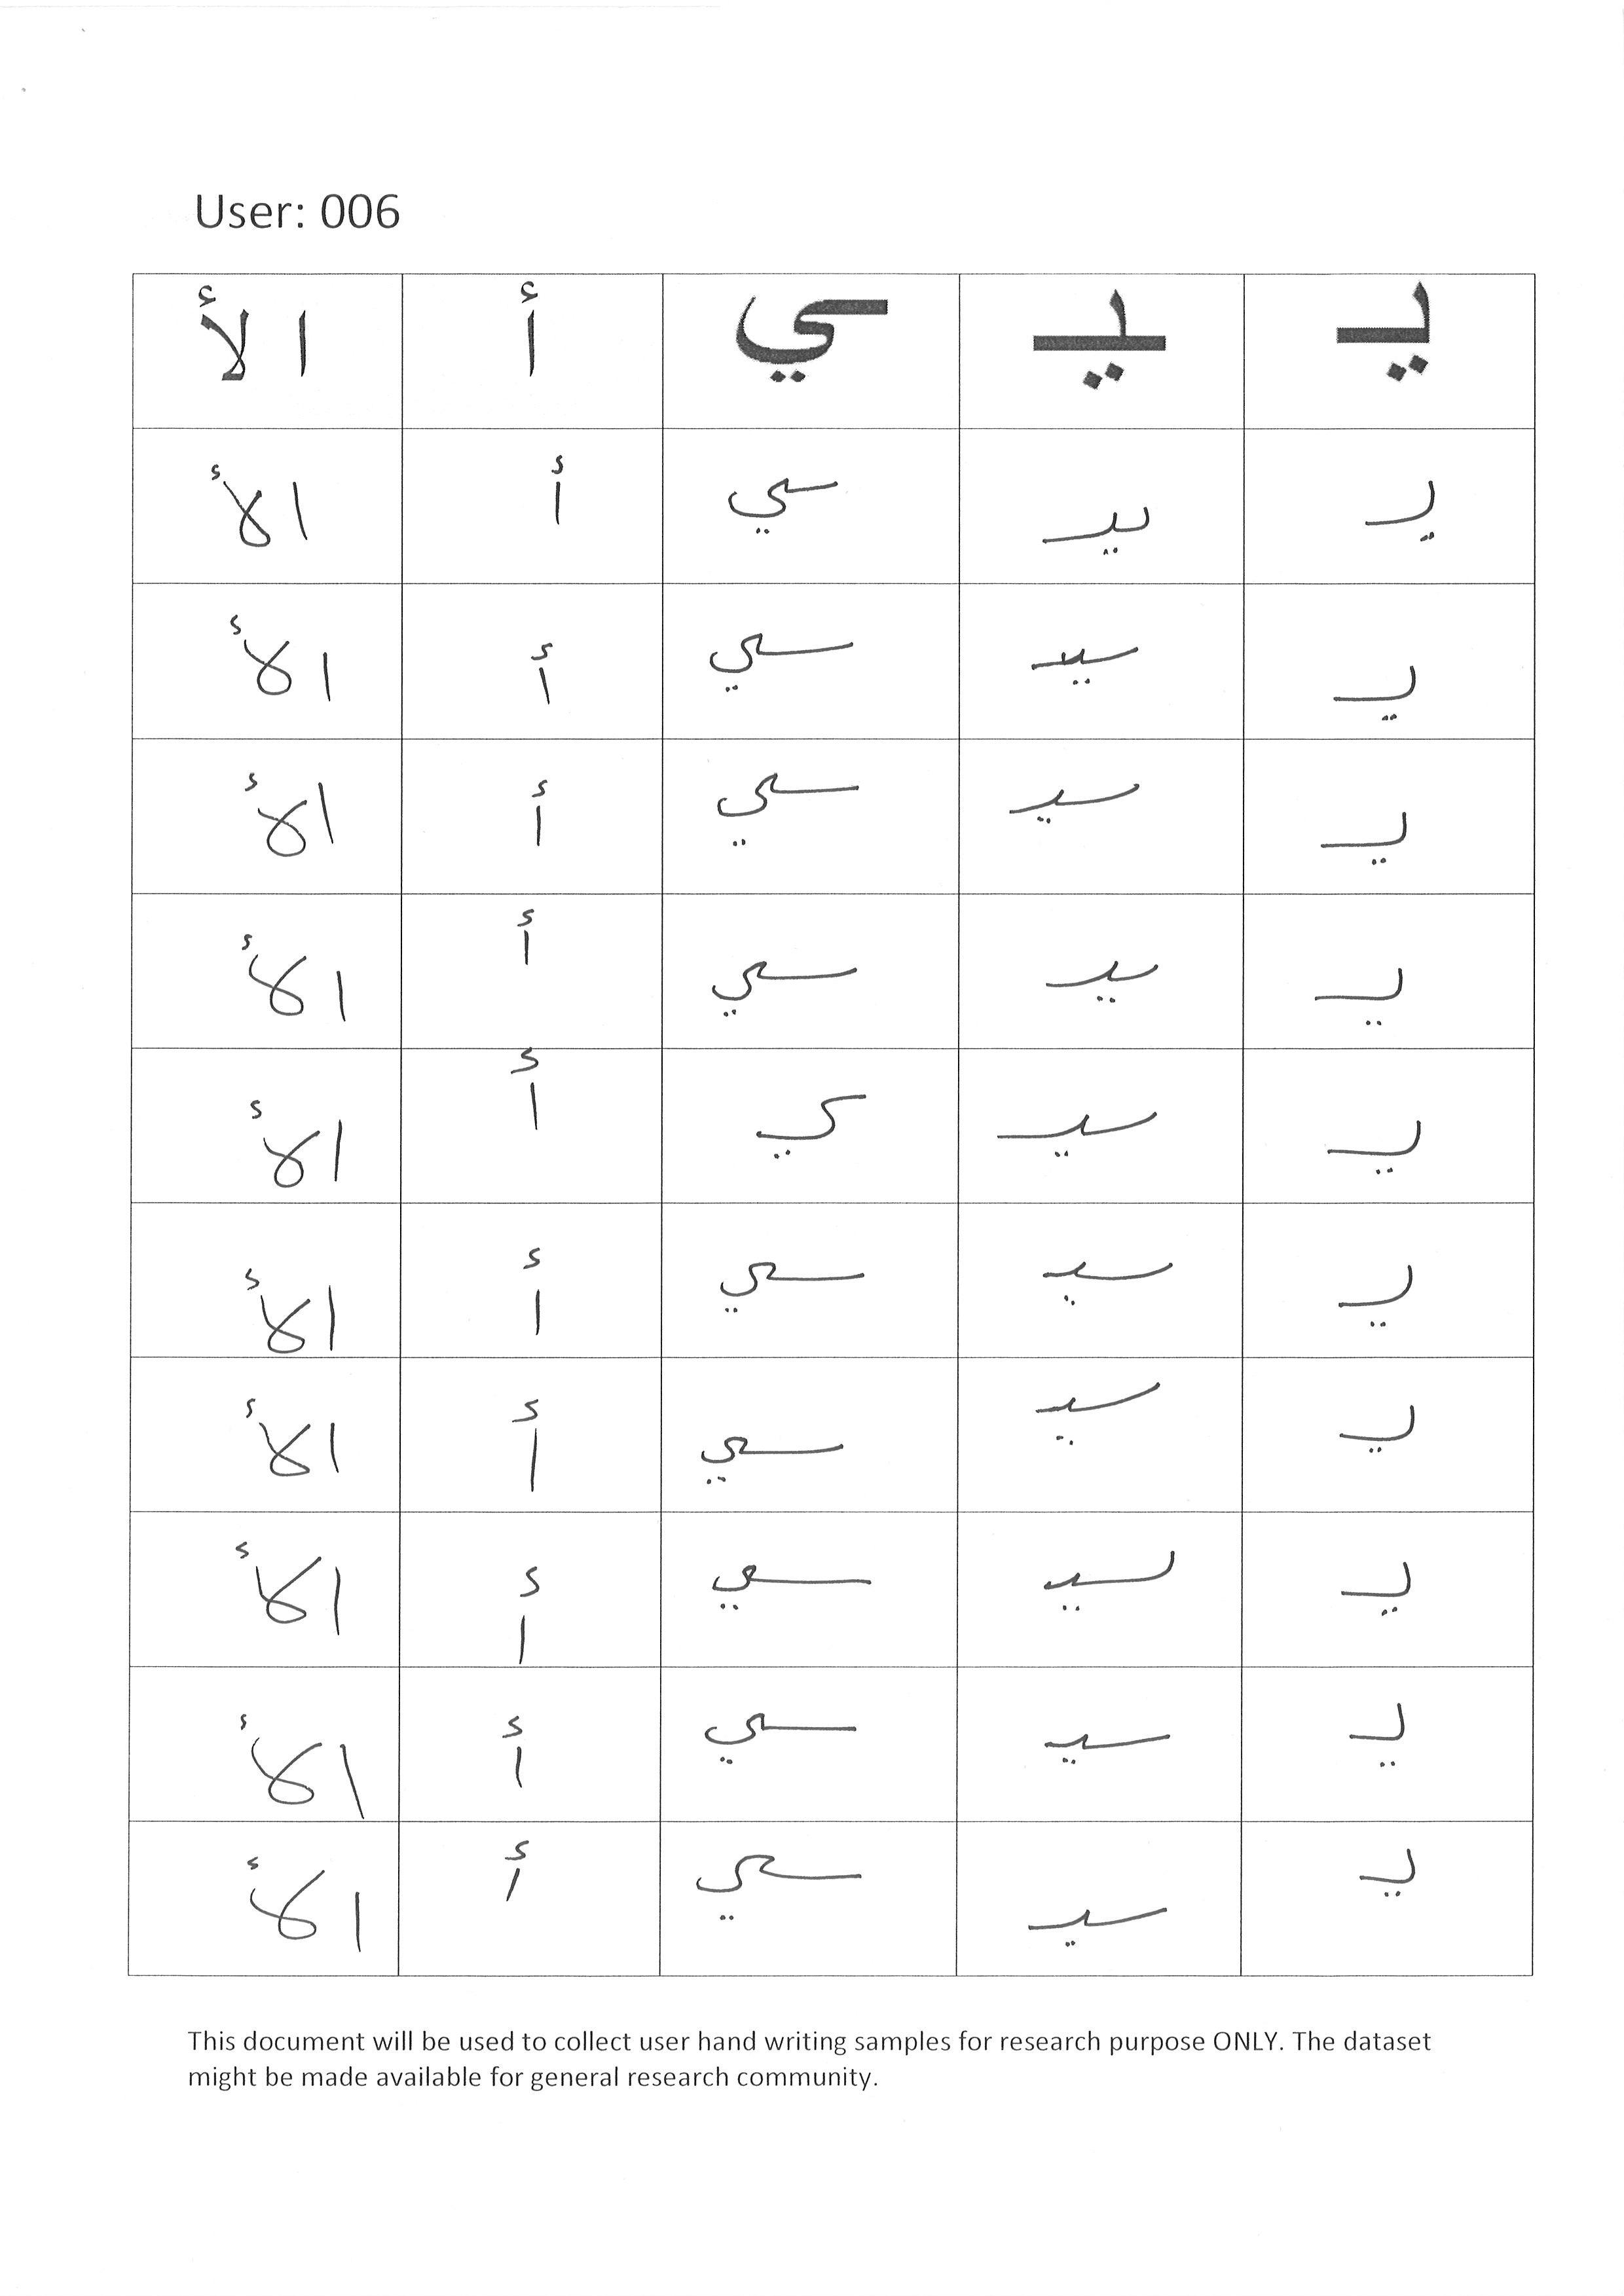 User: 006
يـ ـيـ ـي أ الأ
يـ ـيـ ـي أ الأ
يـ ـيـ ـي أ الأ
يـ ـيـ ـي أ الأ
يـ ـيـ ـي أ الأ
يـ ـيـ ـي أ الأ
يـ ـيـ ـي أ الأ
يـ ـيـ ـي أ الأ
يـ ـيـ ـي أ الأ
يـ ـيـ ـي أ الأ
يـ ـيـ ـي أ الأ
This document will be used to collect user hand writing samples for research purpose ONLY. The dataset
might be made available for general research community.